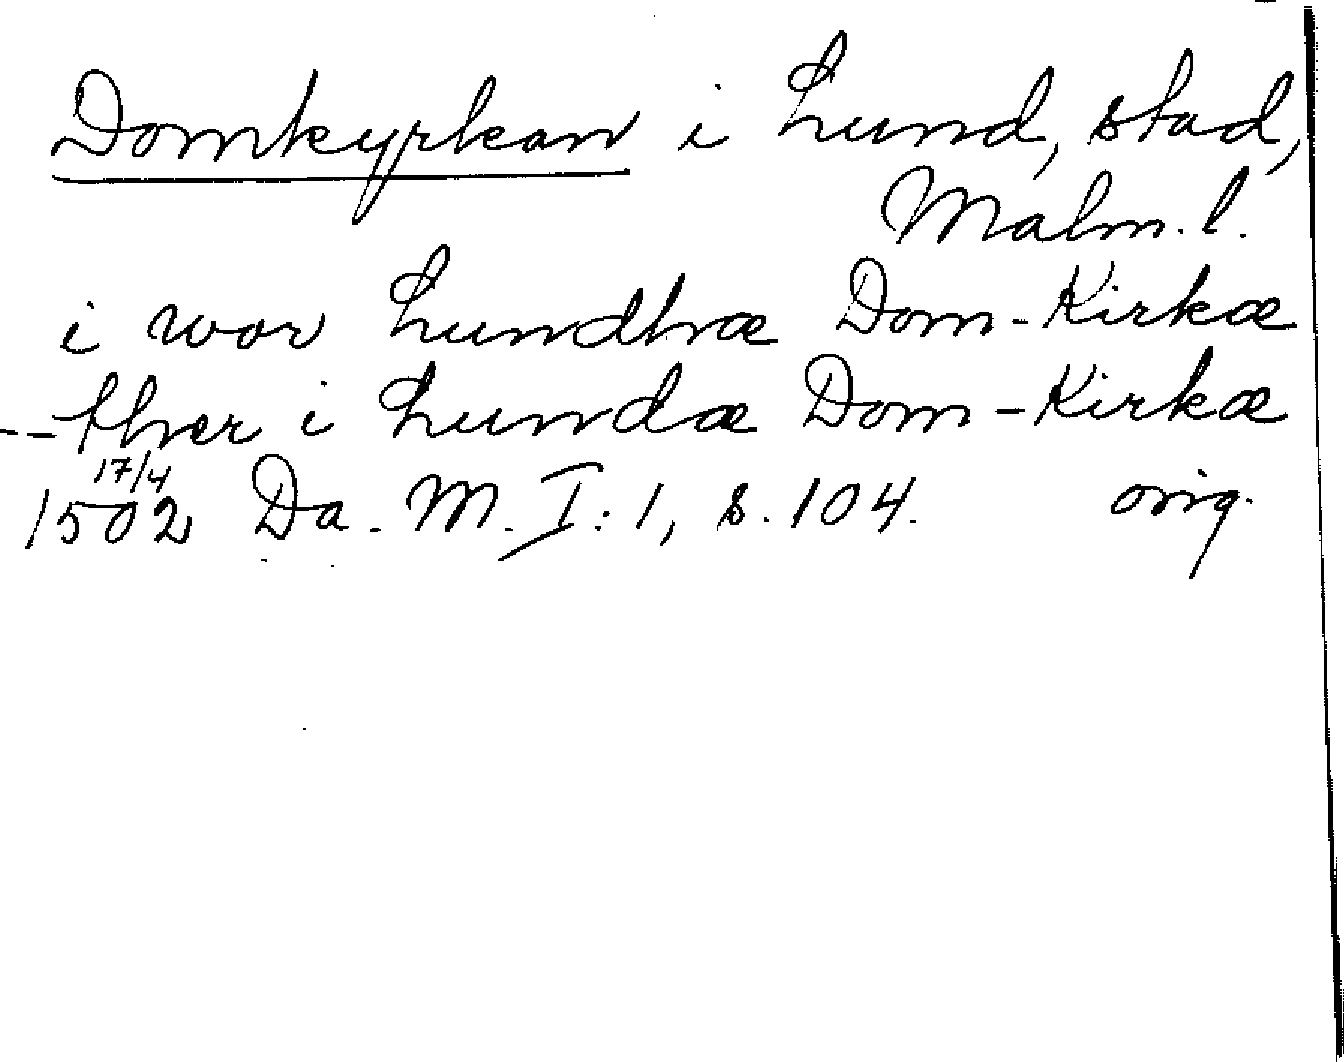 Domkyrkan i Lund, stad,
Malm. l.
i wor Lundhræ Dom-Kirkæ
-- ther i Lundæ Dom-Kirkæ
17/4
1502 Da. M. I:1, s. 104. orig.